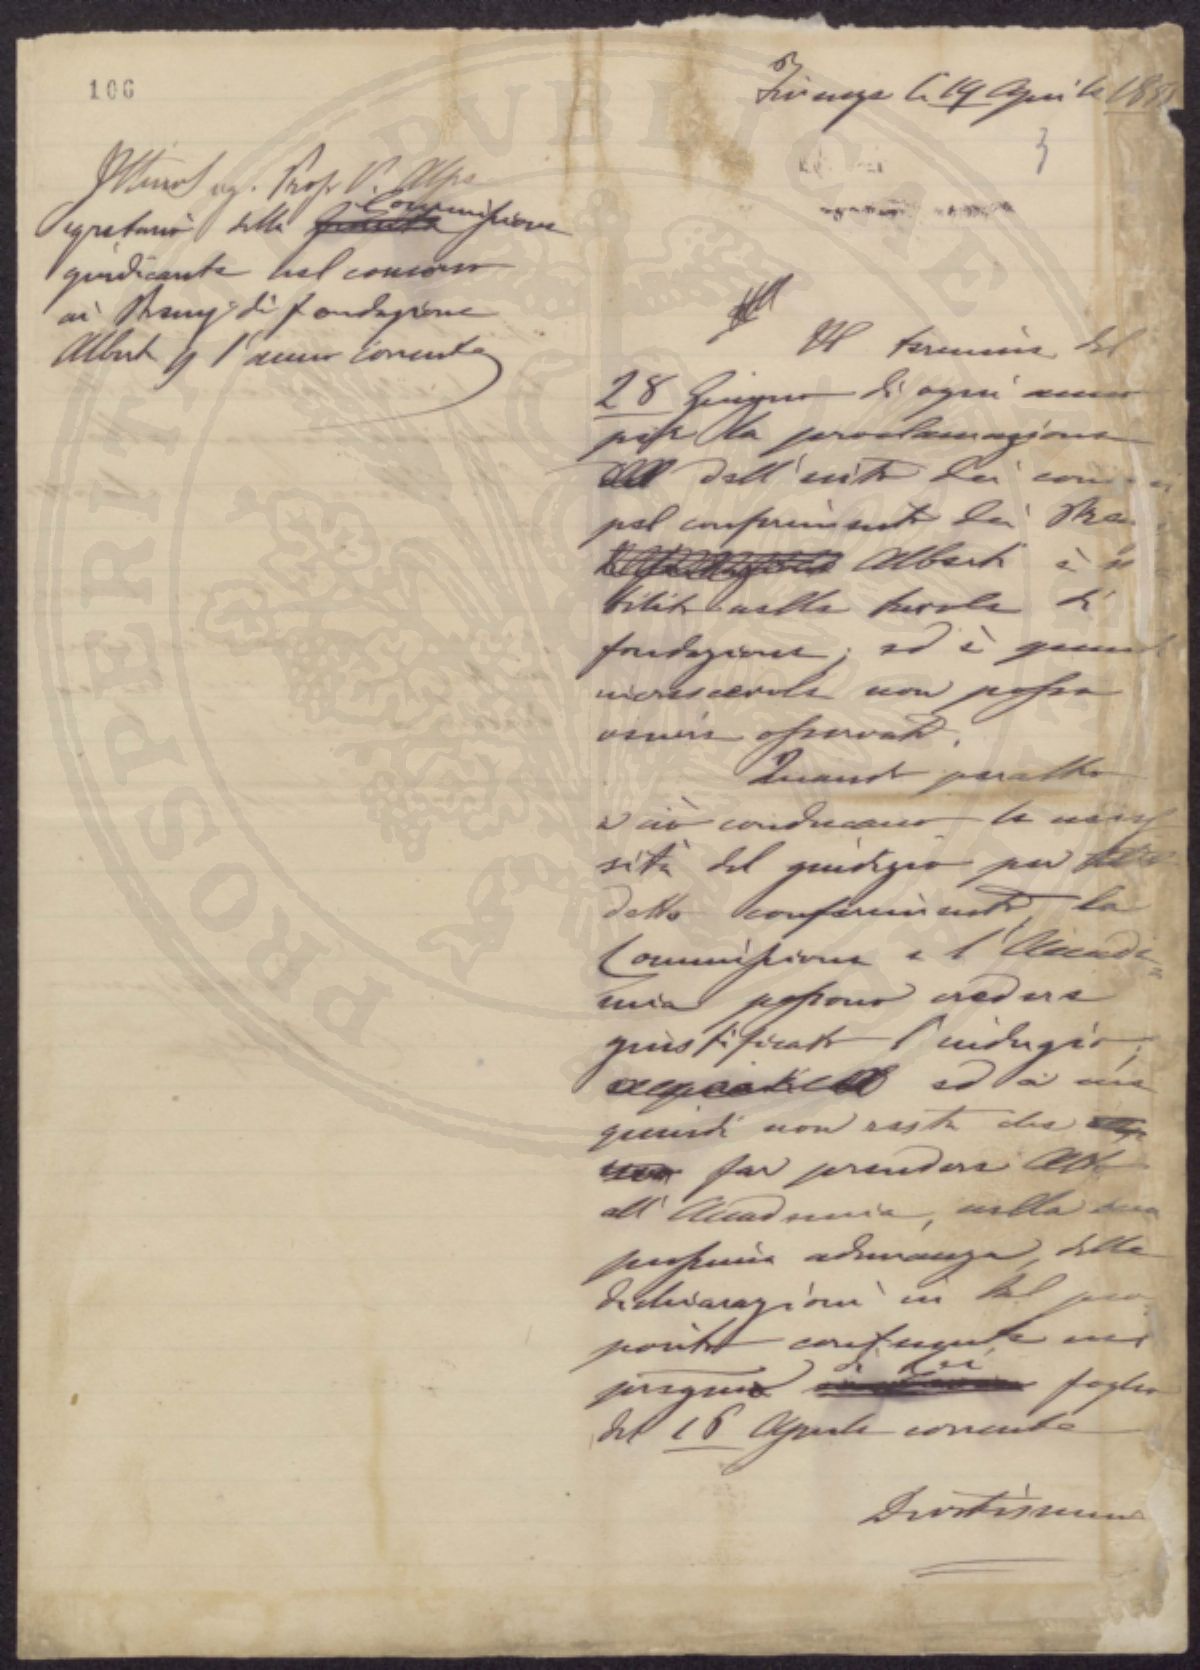 106
Firenze li 19 Aprile 188
3
Sig. Prof. V. Alpe
egretario della Giunta Commissione
giudicante nel concorso
ai Premj di fondazione
Alberti p l'anno corrente
Il termine del
28 Giugno di ogni anno
per la proclamazione
dell'esito dei concorsi
pel conferimento dei Prem
Alberti è sta
bilito nelle tavole di
fondazione; ed è quindi
increscevole non possa
venire osservato.
Quando peraltro
a ciò conducano le neces
sità del giudizio per
detto conferimento, la
Commissione e l'Accade=
mia possono credere
giustificato l'indugio;
ed a me
quindi non resta che
far prendere Atto
all'Accademia, nella sua
prossima adunanza, delle
dichiarazioni in tal pro
posito contenute nel
pregiato di Lei foglio
del 16 Aprile corrente
Devotissimo
PROSPERITATI PVBLICAE